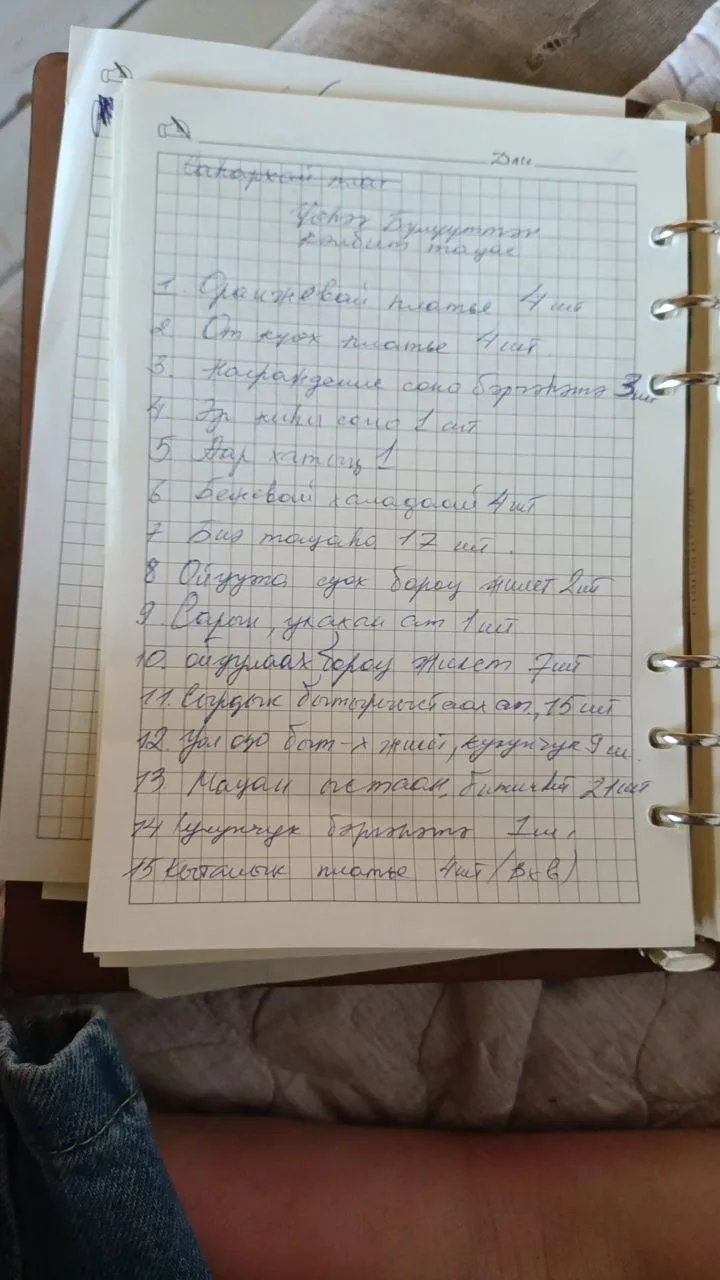 Дни
Үөһээ Бүлүүттэн
кэлбит таҥас
1. Оранжевай платье 4 шт
2 От күөх платье 4 шт.
3. Награждение соно бэргэһэтэ 3 шт
4 Эр киһи соно 1 шт
5 Аар хатыҥ 1
6 Бежевай халадаай 4 шт
7 Биэ таҥаһа 17 шт.
8 Ойуута суох бороҥ жилет 2 шт
9 Сарын, улахан ат 1 шт
10. ойуулаах бороҥ жилет 7 шт
11. Сырдык бытырыыстаах ат, 15 шт
12. Уол оҕо быт-х жилет, кулунчук 9 ш.
13 Маҥан ыстаан, 21 шт
14 Кулунчук бэргэһэтэ 1 ш.
15 Кыталык платье 4 шт